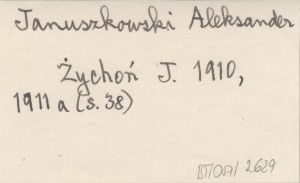 Januszkowski Aleksander
Żychoń J. 1910,
1911 a (s. 38)
BT/OA/ 2629